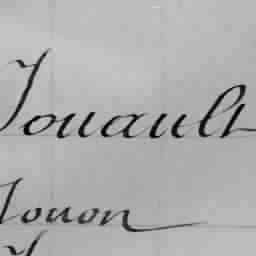 Jouault
Jouon